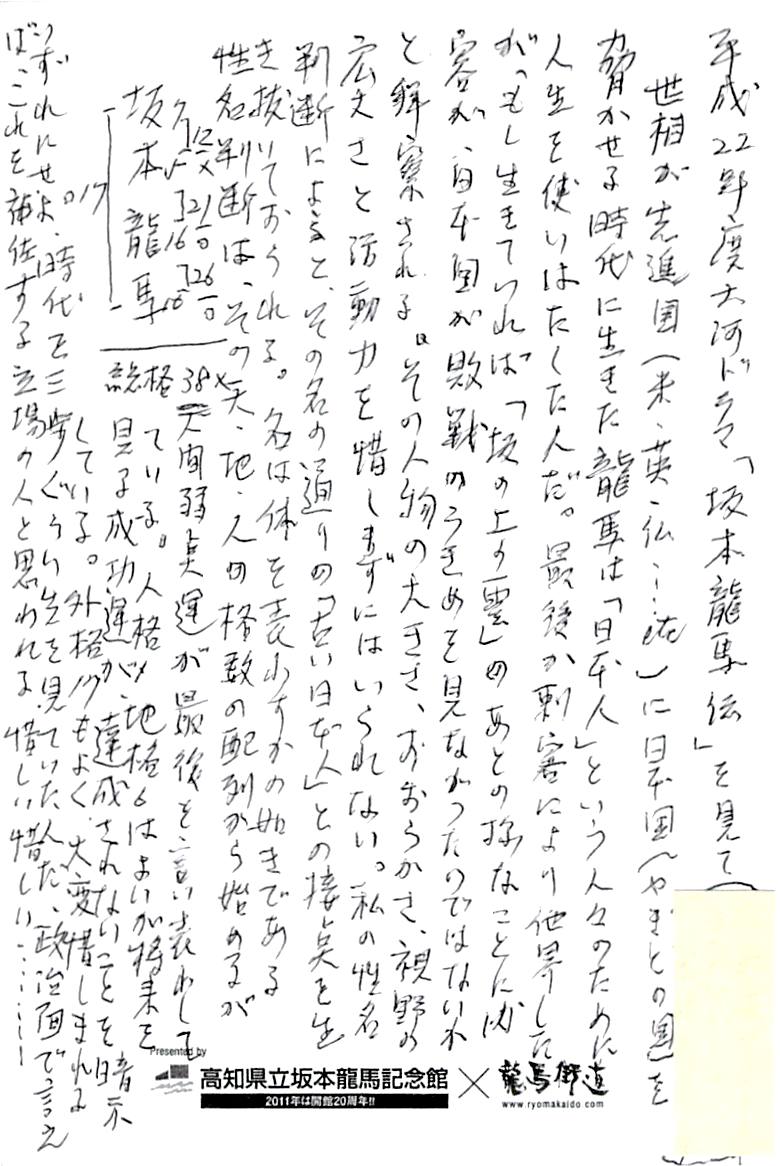 平成22年度大河ドラマ「坂本龍馬伝」を見て(
世相が先進国(米、英、仏、……他)に日本国(やまとの国)を
脅かせる時代に生きた龍馬は「日本人」という人々のために
人生を使いはたした人だ。最後が刺客により他界した
が、もし生きていれば「坂の上の雲」のあとの様なことに
容が、日本国が敗戦のうきめを見なかったのではないか
と解察される。その人物の大きさ、おおらかさ、視野の
広大さと活動力を惜しまずにはいられない。私の性名
判断によると、その名の通りの「古い日本人」との接点を生
き抜いておられる。名は体を表わすかの如きである
性名判断は、その天、地、人の格数の配列から始めるが
坂本龍馬
12×
21
16
26
17
総格 38×
人間弱点運が最後を言い表わし
ている。人格、地格6はよいが将来を
見る成功運が、達成されないことを暗示
している。外格17もよく、大変惜しまれる
いずれにせよ、時代を三歩ぐらい先を見ていた人だ、政治面で言え
ば、これを補佐する立場の人と思われる 惜しい惜しい………
Presented by
高知県立坂本龍馬記念館
2011年は開館20周年!!
×
龍馬街道
www.ryomakaido.com